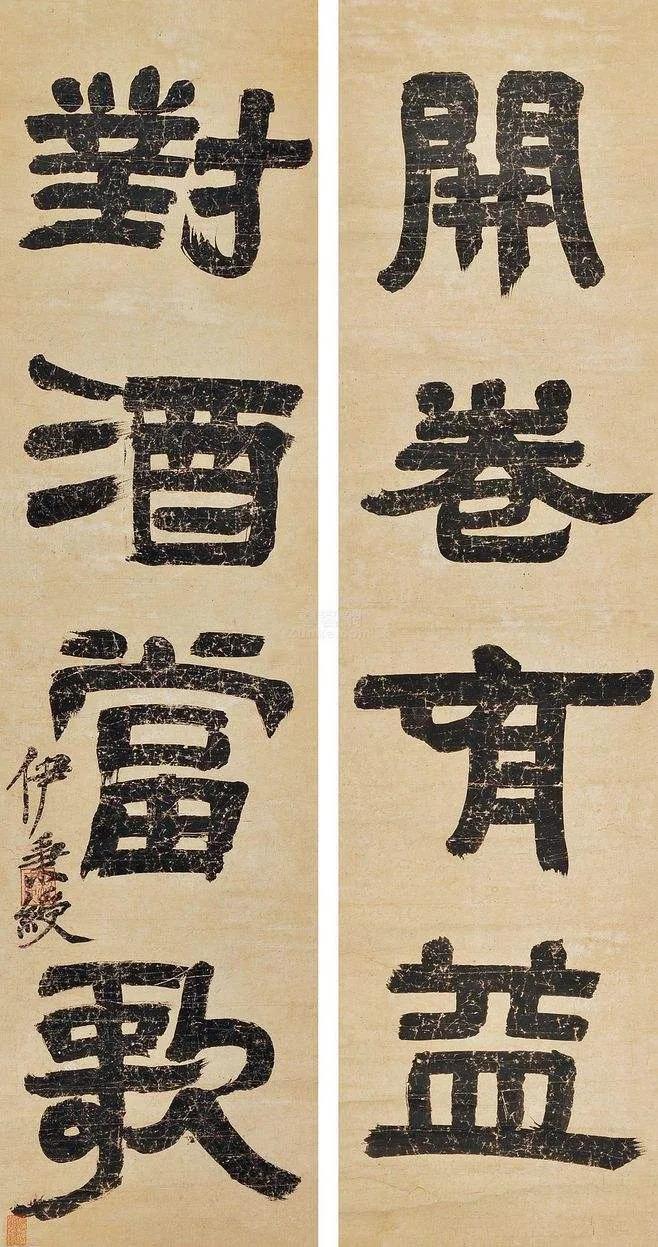 開卷有益
對酒當歌
伊秉綬